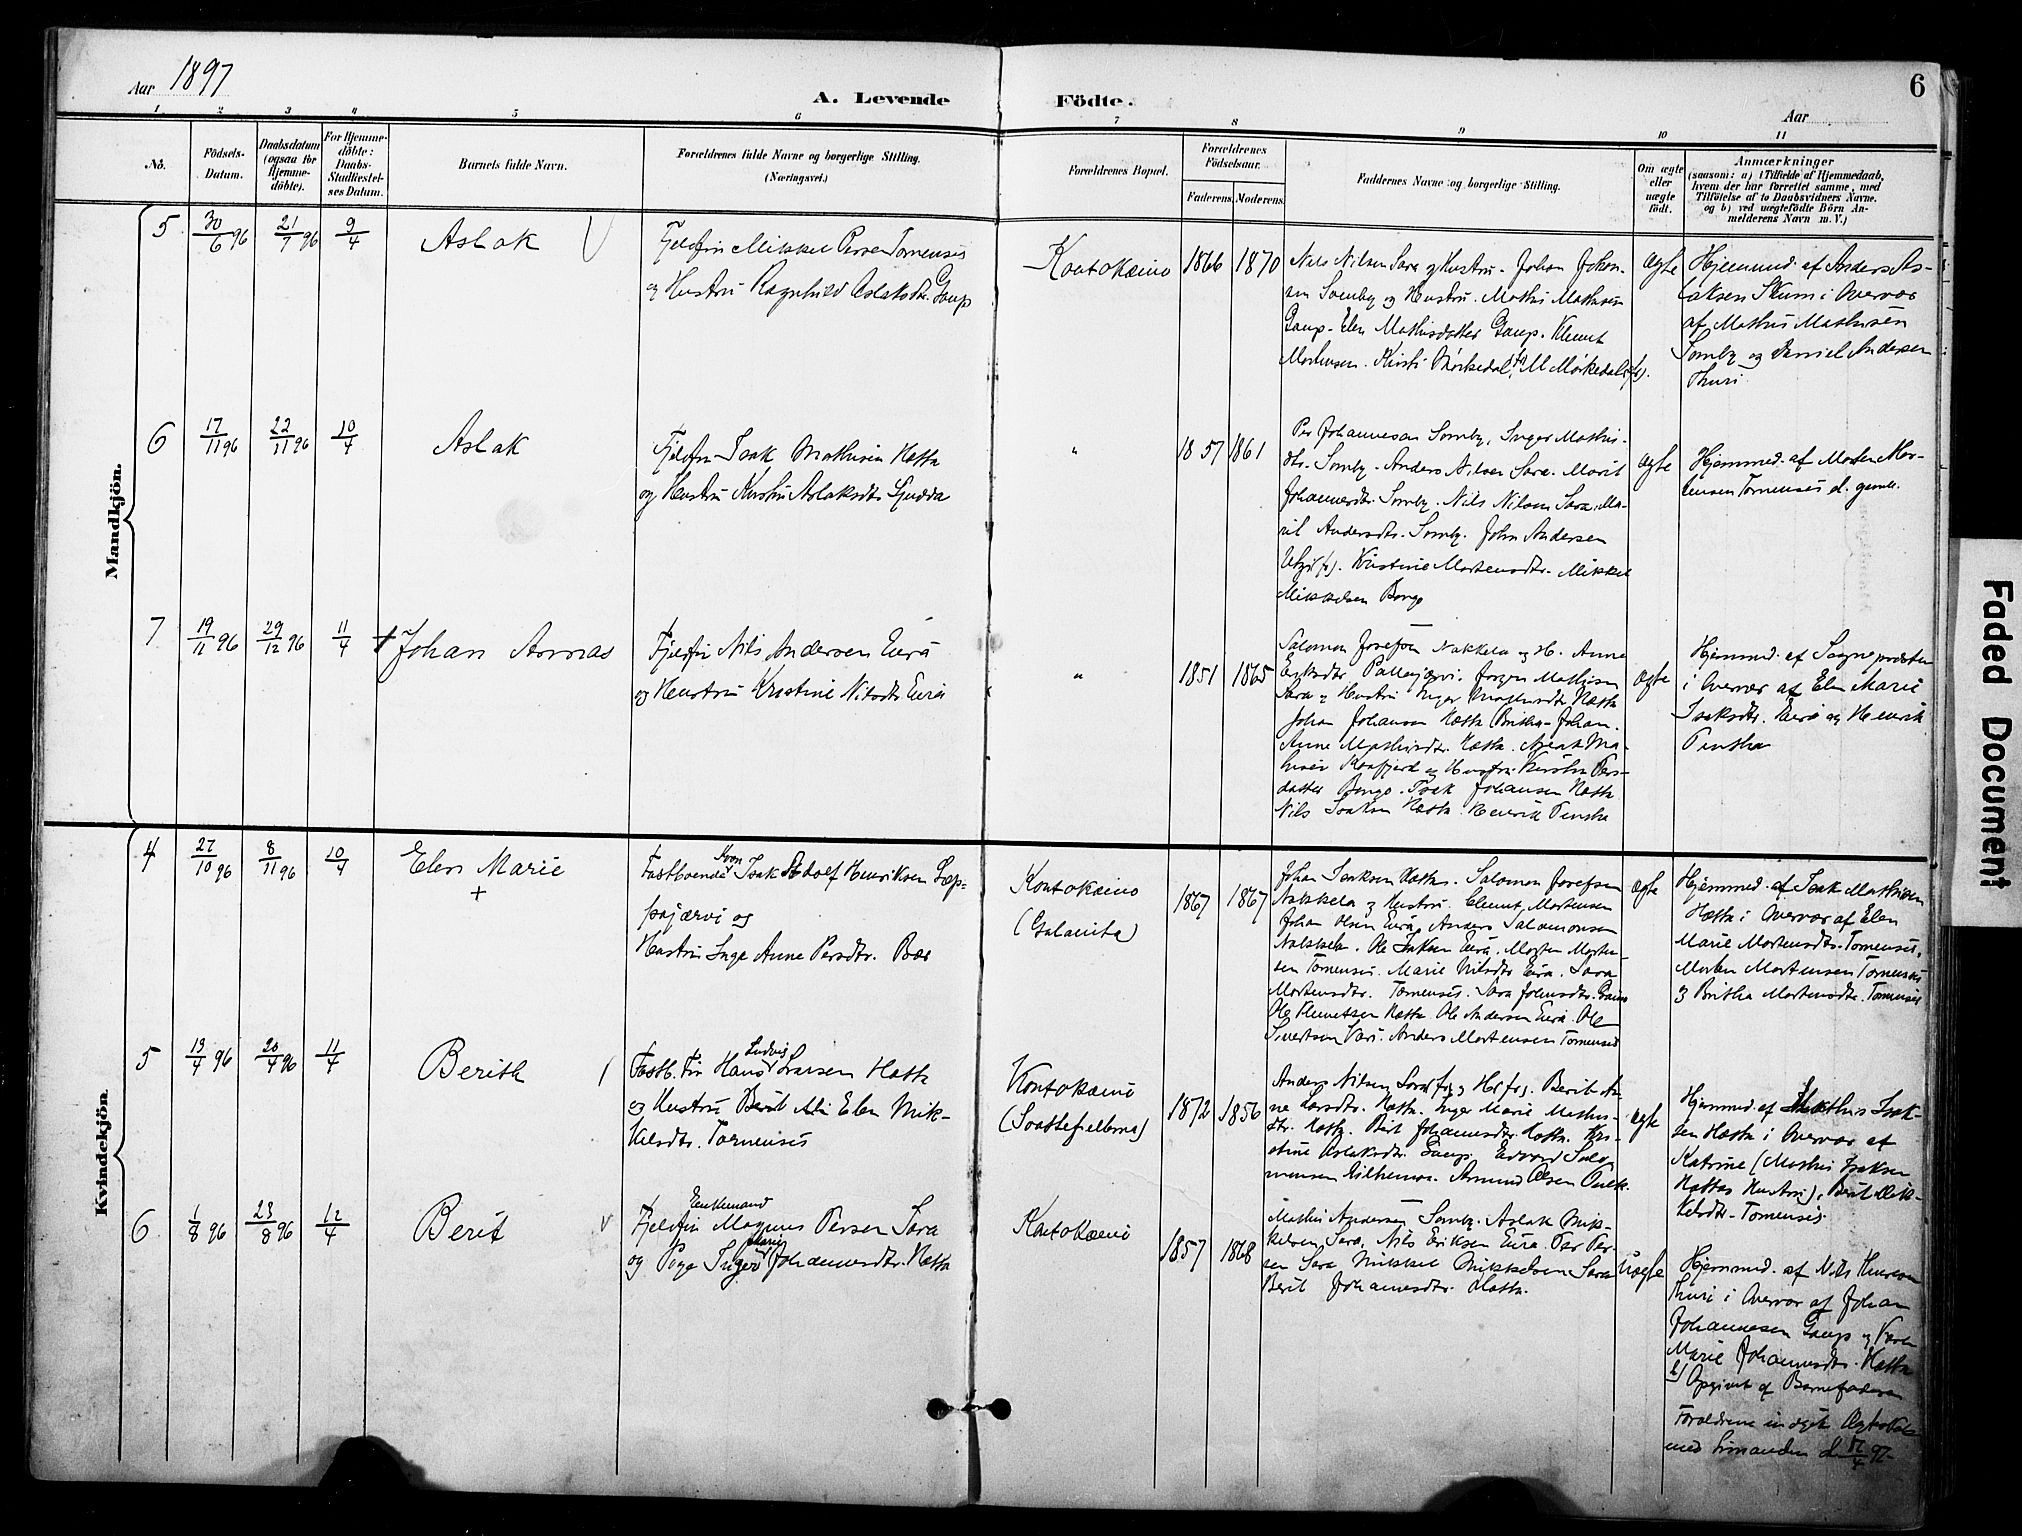 Aar 1897
A. Levende Födte.
Aar
6
1 2 3 4 5 6 7 8 9 10 11
No.
Födsels-Datum.
Daabsdatum (ogsaa for Hjemme-döbte).
For Hjemme-döbte: Daabs-Stadfæstel-ses Datum.
Barnets fulde Navn.
Forældrenes fulde Navne og borgerlige Stilling.
(Næringsvei.)
Forældrenes Bopæl.
Forældrenes Födselsaar.
Faderens. Moderens.
Faddernes Navne og borgerlige Stilling.
Om ægte eller uægte födt.
Anmærkninger
(saasom: a) i Tilfælde af Hjemmedaab,
hvem der har forrettet samme, med
Tilföielse af to Daabsvidners Navne.
og b) ved uægtefödte Börn An-
melderens Navn m. V.)
Mandkjön.
5 30/6 96 21/7 96 9/4 Aslak
Fjeldfin Mikkel Persen Tornensis
og Hustru Ragnhild Aslaksdtr. Gaup
Koutokæino 1866 1870
Nils Nilsen Sara og Hustru. Johan Johan-
sen Somby og Hustru. Mathis Mathisen
Gaup. Elen Mathisdatter Gaup. Klemet
Mortensen. Kirsti Mörkedal, M Mörkedal (fr).
ægte
Hjemmed. af Anders As-
laksen Skum i Overvær
af Mathis Mathisen
Somby og Daniel Andersen
Thuri
6 17/11 96 22/11 96 10/4 Aslak
Fjeldfin Isak Mathisen Hætta
og Hustru Kirsti Aslaksdtr Sjudda
" 1857 1861
Per Johannesen Somby, Inger Mathis-
dtr. Somby. Anders Nilsen Sara. Marit
Johannesdtr Somby. Nils Nilsen Sara. Ma-
rit Andersdtr. Somby. John Andersen
Utsi (fr). Kristine Mortensdtr. Mikkel
Mikkelsen Bongo
ægte
Hjemmed. af Morten Mor-
tensen Tornensis d. gamle.
7 19/11 96 29/12 96 11/4 Johan Asmas
Fjeldfin Nils Andersen Eira
og Hustru Kristine Nilsdtr Eira
" 1851 1865
Salomon Josefsen Nakkela og H. Anne
Eriksdtr Pallajærvi. Jørgen Mathisen
Sara og Hustru Inger Magnusdtr Hætta
Johan Johansen Hætta Britha Johan.
Anne Mathisdtr. Hætta. Aslak Ma-
thisen Kaafjord og Hustru. Kirstin Pers-
datter Bongo. Isak Johansen Hætta
Nils Isaksen Hætta. Henrik Pentha
ægte
Hjemmed. af Sognepræsten
i Overvær af Elen Marie
Isaksdtr. Eira og Henrik
Pentha
Kvindekjön.
4 27/10 96 8/11 96 10/4 Elen Marie
+
Fastboende Kvæn Isak Adolf Henriksen Læp-
pæjærvi og
Hustru Inge Anne Persdtr. Bær
Koutokæino
(Galanita)
1867 1867
Johan Isaksen Hætta. Salomon Josefsen
Nakkela og Hustru. Clemet Mortensen
Johan Olsen Eira, Anders Salomonsen
Nakkela. Ole Isaksen Eira, Morten Morten-
sen Tornensis. Marie Nilsdtr Eira. Sara
Mortensdtr. Tornensis. Sara Johnsdtr.
Ole Klemetsen Hætta. Ole Andersen Eira. Ole
Sivertsen Vars. Anders Mortensen Tornensis
ægte
Hjemmed. af Isak Mathisen
Hætta i Overvær af Elen
Marie Mortensdtr. Tornensis,
Morten Mortensen Tornensis
og Britha Mortensdtr. Tornensis
5 13/4 96 20/4 96 11/4 Berith
Fastb. Fin Hans Ludvig Larsen Hætta
og Hustru Elen Mik-
kelsdtr. Tornensis
Koutokæino
(Soattefiellema)
1872 1856
Anders Nilsen Sara (fr) og H (fr). Berit An-
ne Larsdtr. Hætta. Inger Marie Mathis-
dtr. Hætta. Berit Johannesdtr. Hætta. Kri-
stine Aslaksdtr. Gaup. Edvard Salo-
monsen. Asmund Olsen
ægte
Hjemmed. af Mathis Isak-
sen Hætta i Overvær af
Katrine (Mathis Isaksen
Hættas Hustru), Berit Mik-
kelsdtr. Tornensis.
6 1/8 96 23/8 96 12/4 Berit
Enkemand
Fjeldfin Magnus Persen Sara
og Pige Inger Marie Johannesdtr. Hætta
Koutokæino
1857 1868
Mathis Andersen Somby. Aslak Mik-
kelsen Sara, Nils Eriksen Eira. Per Per-
sen Sara Mikkel Mikkelsen Sara
Berit Johannesdtr. Hætta.
uægte
Hjemmed. af Nils Henriksen
Thuri i Overvær af Johan
Johannesen Gaup og Karen
Marie Johannesdtr. Hætta
b) Opgivet af Barnefaderen
Forældrene indgik Ægteskab
med hinanden d 17/4 97.
Faded Document